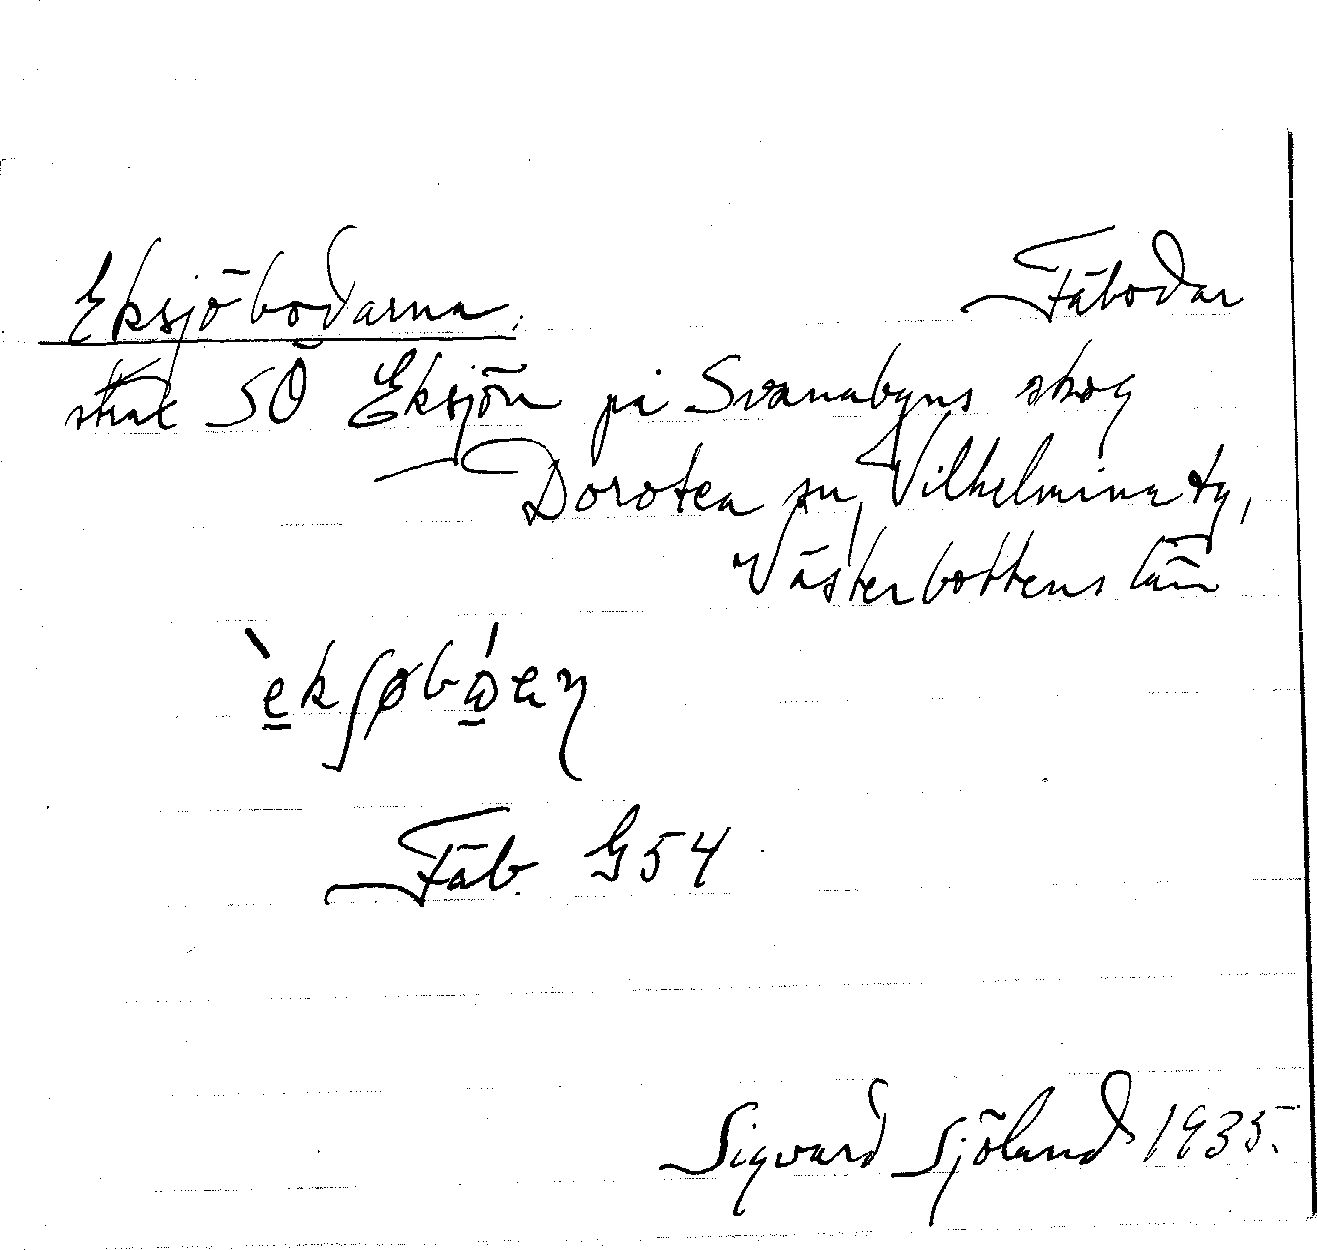 Eksjöbodarna. Fäbodar
strax SÖ Eksjön på Svanabyns skog
Dorotea sn, Vilhelmina tg,
Västerbottens län
Fäb. G54
Sigvard Sjöland 1935.